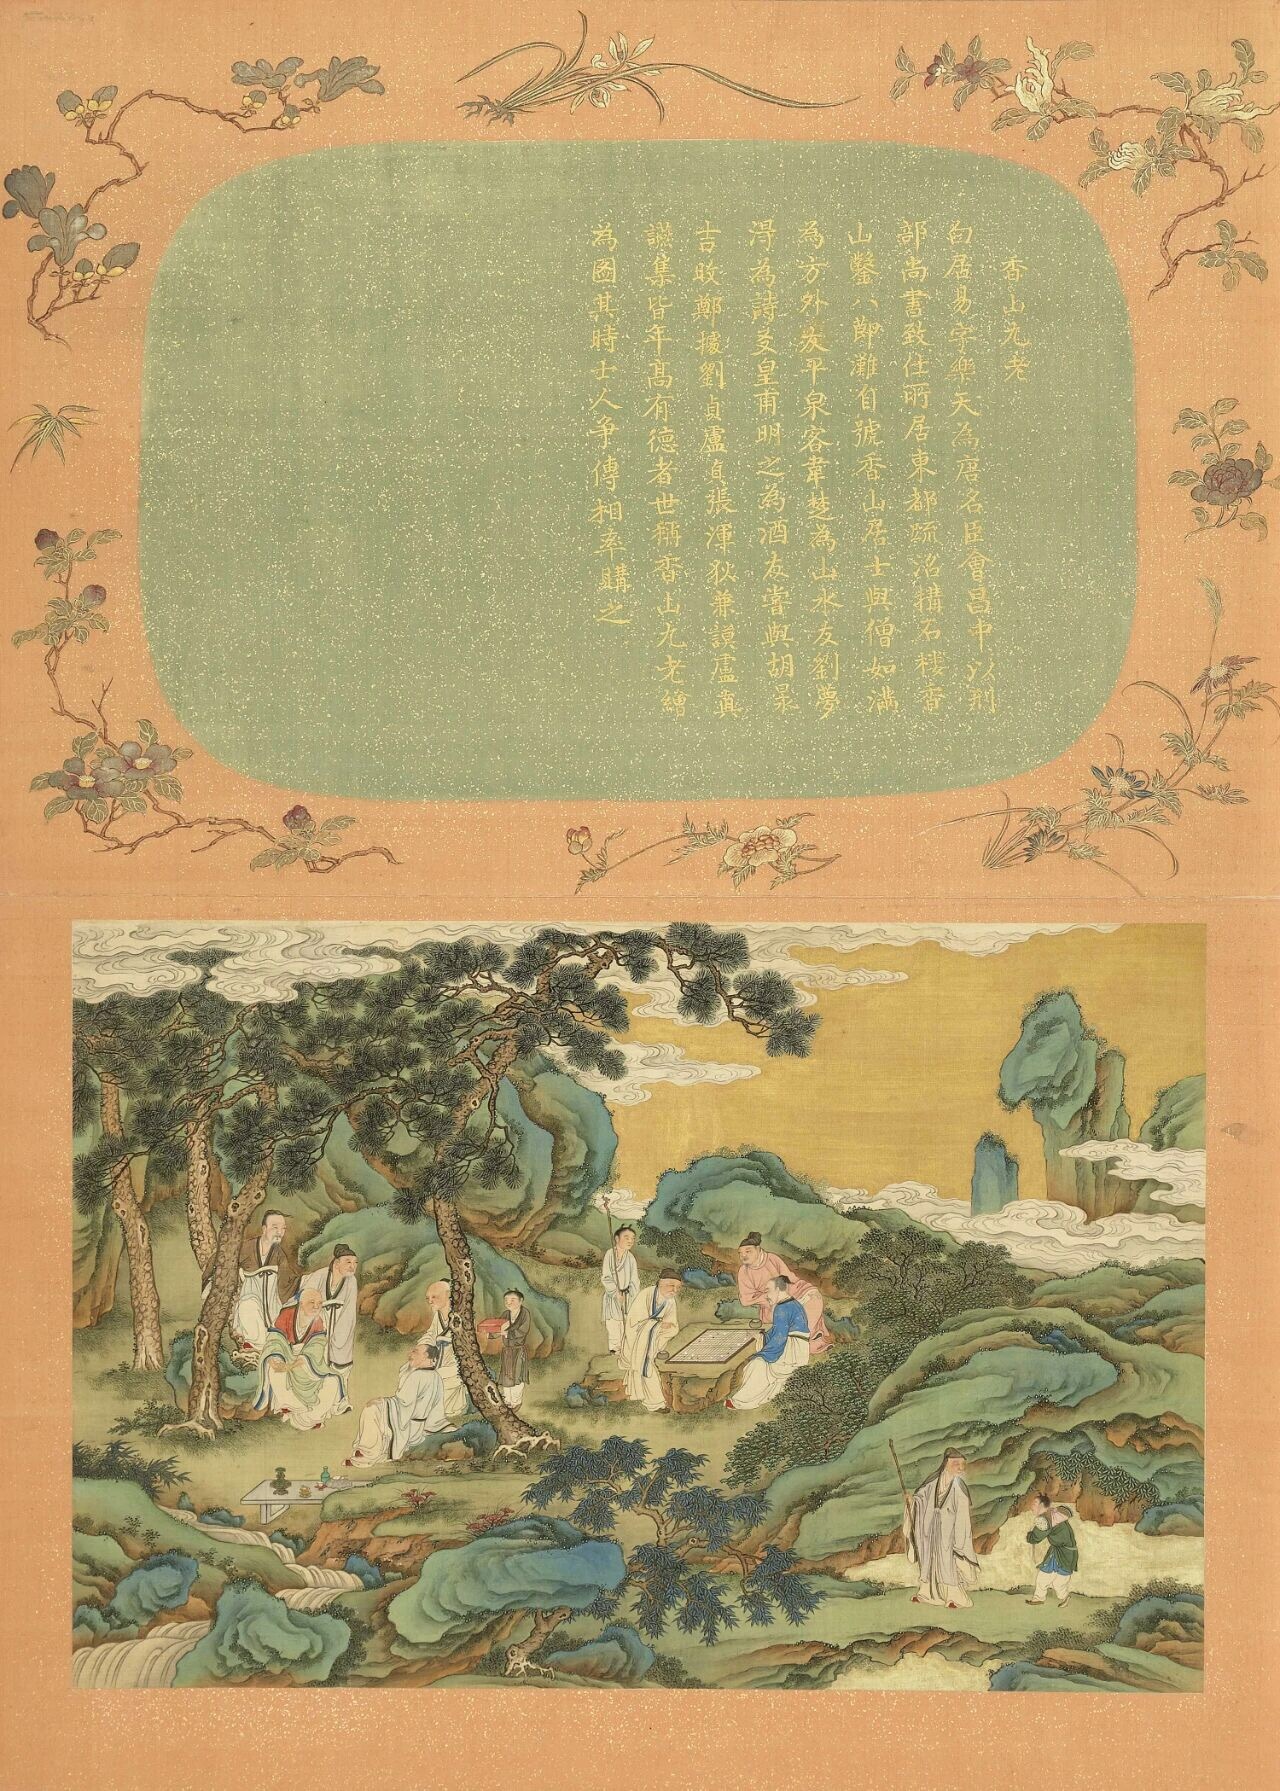 香山九老
白居易字樂天為唐名臣會昌中以刑
部尚書致仕所居東都疏沼構石樓香
山鑿八節灘自號香山居士與僧如滿
為方外友平泉客韋楚為山水友劉夢
得為詩友皇甫明之為酒友嘗與胡杲
吉旼鄭據劉貞盧貞張渾狄兼謨盧真
讌集皆年髙有德者世稱香山九老繪
為圖其時士人爭傳相率購之